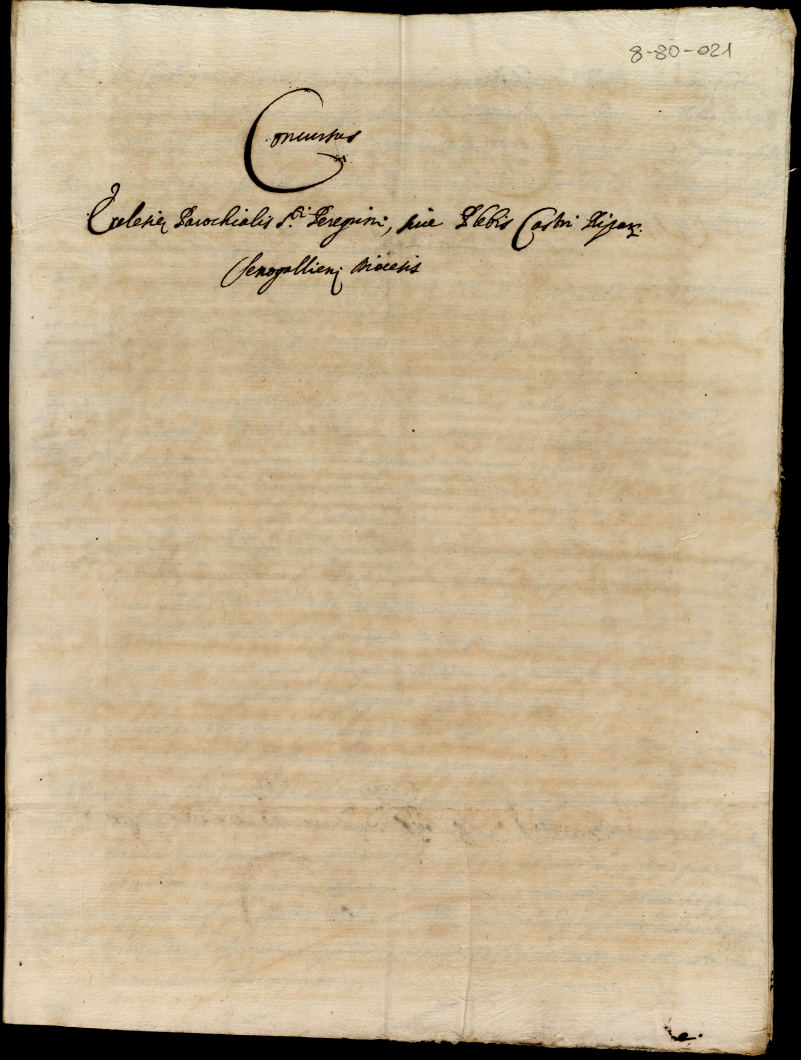 8-80-021
Concursus
Ecclesię Parochialis S.ti Peregrini, sive Plebis Castri Riparę
Senogallien̄ Diocesis